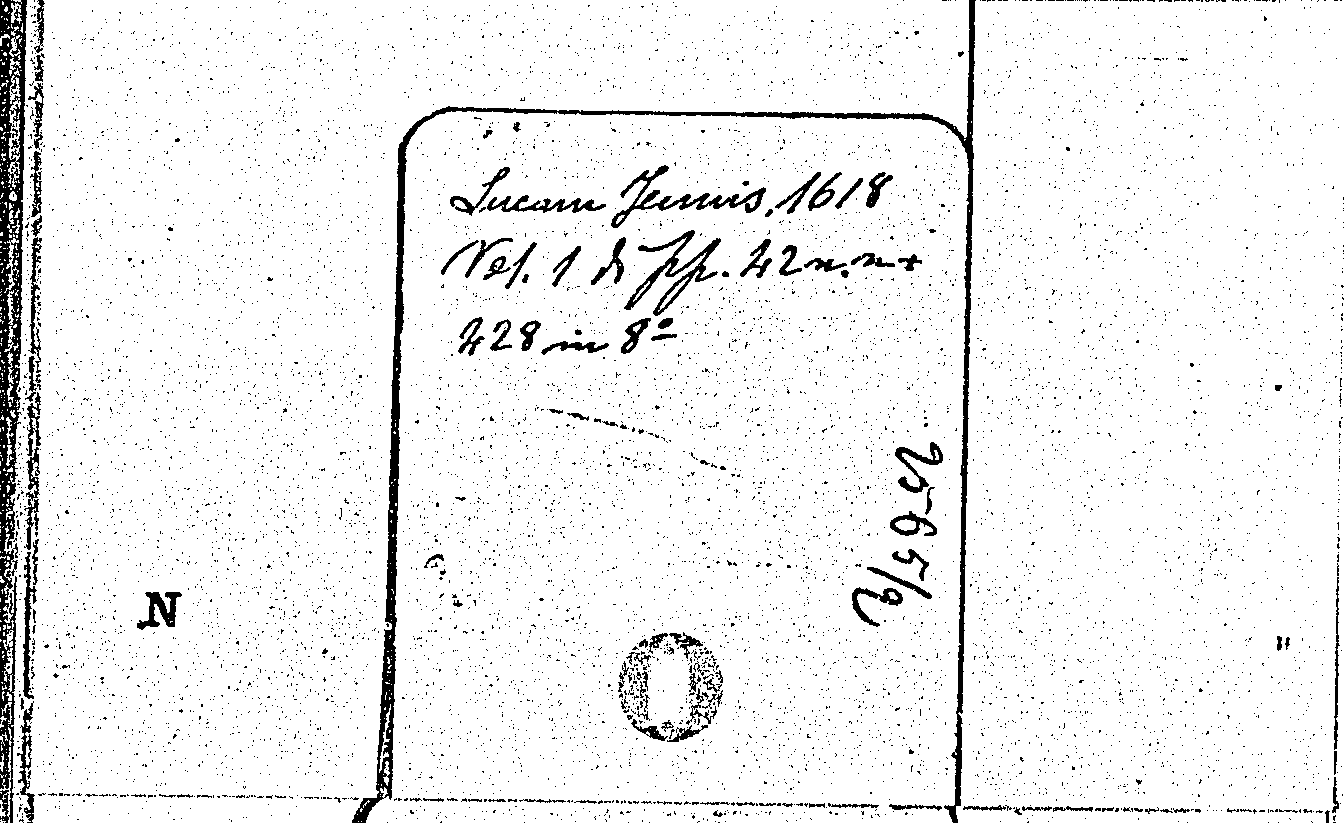 Lucam Jennis, 1618
Vol. 1 di pp. 42 n. n +
428 in 8º
N